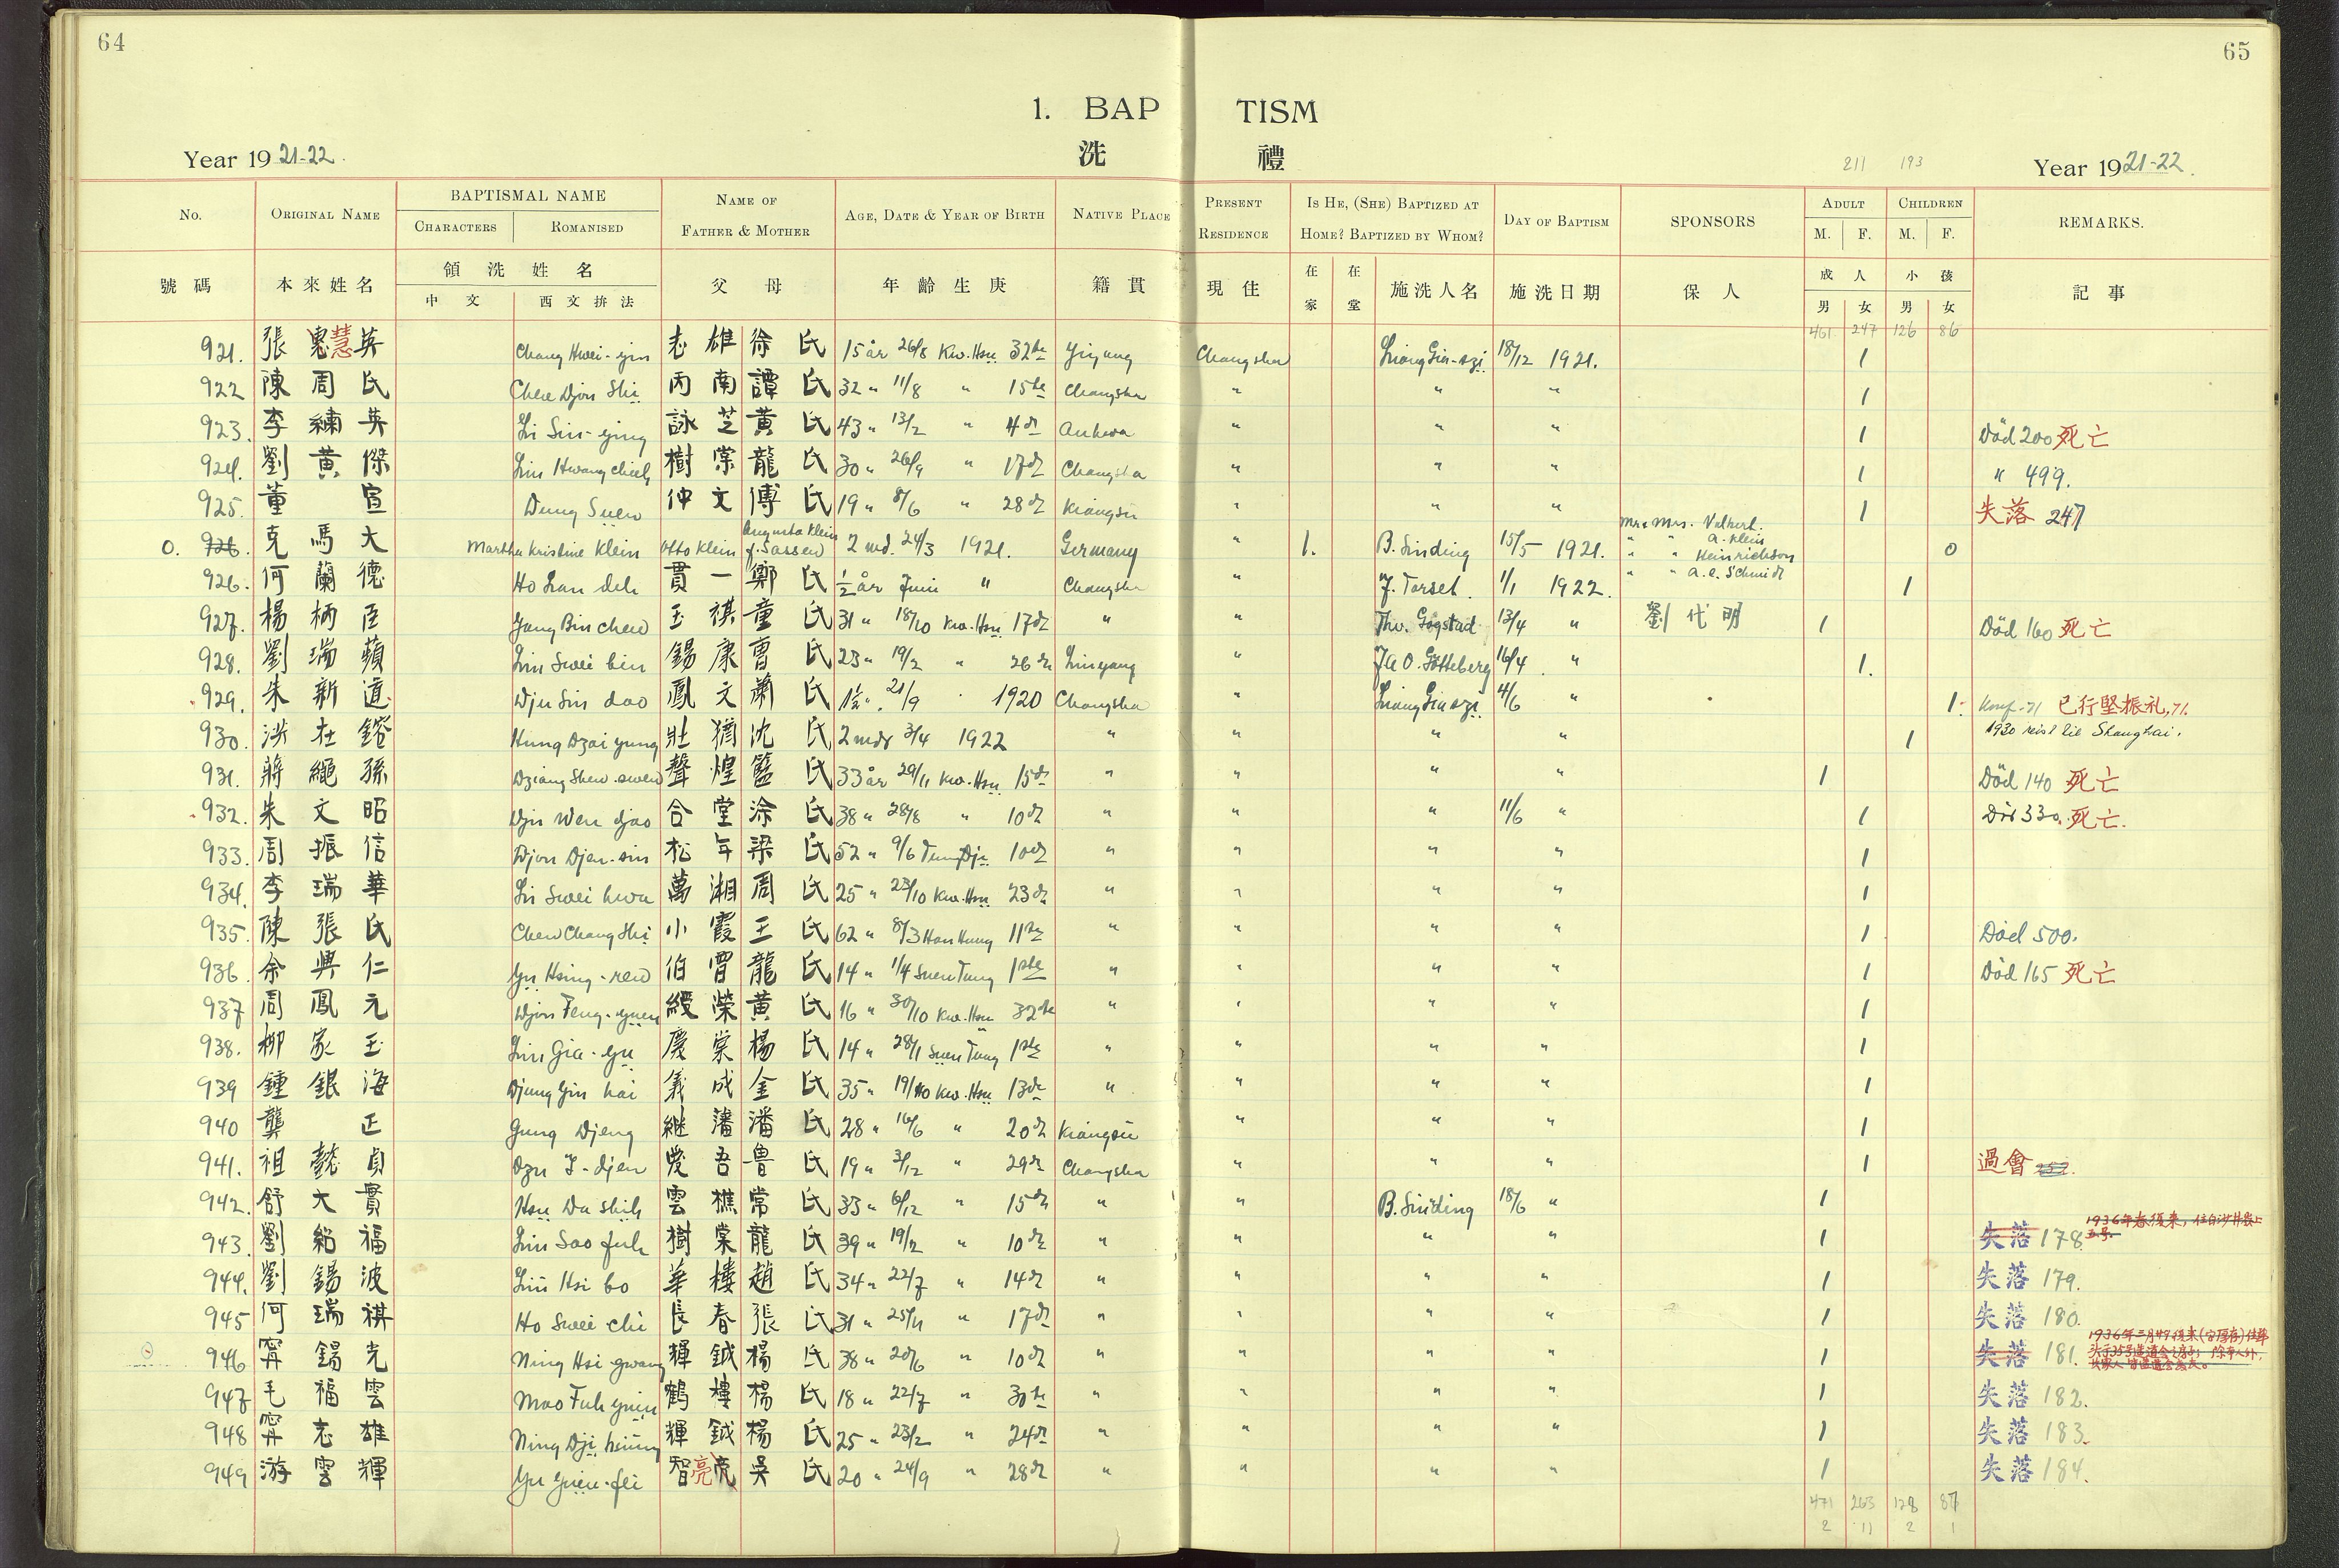 64
65
1. BAPTISM
洗 禮
Year 1921-22.
211 193
Year 1921-22.
No. ORIGINAL NAME BAPTISMAL NAME NAME OF FATHER & MOTHER AGE, DATE & YEAR OF BIRTH NATIVE PLACE PRESENT RESIDENCE IS HE, (SHE) BAPTIZED AT HOME? BAPTIZED BY WHOM? DAY OF BAPTISM SPONSORS ADULT CHILDREN REMARKS.
CHARACTERS ROMANISED M. F. M. F.
號碼 本來姓名 領洗姓名 父母 年齡生庚 籍貫 現住 在家 在堂 施洗人名 施洗日期 保人 成人 小孩 記事
中文 西文拚法 男 女 男 女
461 247 126 86
921. 張惠慧英 Chang Hwei-yin 志雄 徐氏 15 år 26/8 Kw.Hsu 32te Yiyang Changsha Liang Gia-szi 18/12 1921. 1
922 陳周氏 Chen Djou Shi 丙南 譚氏 32 " 11/8 " 15te Changsha " " " 1
923. 李繡英 Li Siu-ying 詠芝 黃氏 43 " 13/2 " 4de Anhwa " " " 1 Död 200 死亡
924. 劉黃傑 Liu Hwang chieh 樹棠 龍氏 30 " 26/9 " 17de Changsha " " " 1 " 499.
925. 董宣 Dung Suen 仲文 傅氏 19 " 8/6 " 28de Kiangsu " " " 1 失落 247
0. 926. 克馬大 Martha Kristine Klein Otto Klein Augusta Klein f. Sassen 2 md. 24/3 1921. Germany " 1. B. Sinding 15/5 1921. Mr & Mrs. Volkert. 0
" " A. Klein
" " Heinrichson
" " A. E. Schmidt
926. 何蘭德 Ho Lan deh 貫一 鄭氏 ½ år Juni " Changsha " J. Torset. 1/1 1922. 1
927. 楊柄臣 Yang Bin chen 玉祺 童氏 31 " 18/10 Kw.Hsu 17de " " Thv. Gogstad 13/4 " 劉代明 1 Död 160 死亡
928. 劉瑞蘋 Liu Swei bin 錫康 曹氏 23 " 19/2 " 26de Liuyang " Ja O. Gotteberg 16/4 " 1.
929. 朱新道 Dju Sin dao 鳳文 蕭氏 1½ " 21/9 1920 Changsha " Liang Gia szi 4/6 " 1. Konf-71 已行堅振礼,71.
930. 洪在鎔 Hung Dzai yung 壯猶 沈氏 2 mdr 3/4 1922 " " " " 1 1930 reist til Shanghai.
931. 蔣繩孫 Dziang Shen-swen 聲煌 籃氏 33 år 29/11 Kw.Hsu 15de " " " " 1 Död 140 死亡
932. 朱文昭 Dju Wen djao 合堂 涂氏 38 " 28/8 " 10de " " " 11/6 " 1 Död 330. 死亡.
933. 周振信 Djou Djen-sin 松年 梁氏 52 " 9/6 Tung Dji 10de " " " " 1
934. 李瑞華 Li Swei hwa 萬湘 周氏 25 " 23/10 Kw.Hsu 23de " " " " 1
935. 陳張氏 Chen Chang Shi 小霞 王氏 62 " 8/3 Han Hung 11te " " " " 1 Död 500.
936. 余興仁 Yu Hsing-ren 伯曾 龍氏 14 " 1/4 Suen Tung 1ste " " " " 1 Död 165 死亡
937 周鳳元 Djou Feng-yuen 綬榮 黃氏 16 " 30/10 Kw.Hsu 32te " " " " 1
938. 柳家玉 Liu Gia-yu 慶棠 楊氏 14 " 28/1 Suen Tung 1ste " " " " 1
939 鍾銀海 Djung Yin hai 義成 金氏 35 " 19/10 Kw.Hsu 13de " " " " 1
940 龔正 Gung Djeng 繼藩 潘氏 28 " 16/6 " 20de Kiangsu " " " 1
941. 祖懿貞 Dzu I-djen 愛吾 魯氏 19 " 3/12 " 29de Changsha " " " 1 過會
942. 舒大實 Hsu Da shih 雲樵 常氏 33 " 6/12 " 15de " " B. Sinding 18/6 " 1
943. 劉紹福 Liu Sao fuh 樹棠 龍氏 39 " 19/2 " 10de " " " " 1 失落 178. 1936年春復來,住白沙井
944. 劉錫波 Liu Hsi bo 華樓 趙氏 34 " 22/7 " 14de " " " " 1 失落 179.
945 何瑞祺 Ho Swei chi 長春 張氏 31 " 25/11 " 17de " " " " 1 失落 180.
946 甯錫光 Ning Hsi gwang 輝鉞 楊氏 38 " 20/6 " 10de " " " " 1 失落 181.
947 毛福雲 Mao Fuh yuin 鶴樓 楊氏 18 " 22/7 " 30te " " " " 1 失落 182.
948 甯志雄 Ning Dji hsiung 輝鉞 楊氏 25 " 23/2 " 24de " " " " 1 失落 183.
949 游雲輝 Yu Yuin-fei 智亮 吳氏 20 " 24/9 " 28de " " " " 1 失落 184.
471 263 128 87
2 11 2 1